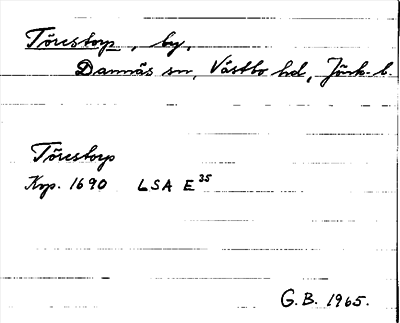 Törestorp, by,
Dannäs sn, Västbo hd, Jönk. l.
Törestorp
Kop. 1690 LSA E 35
G.B. 1965.